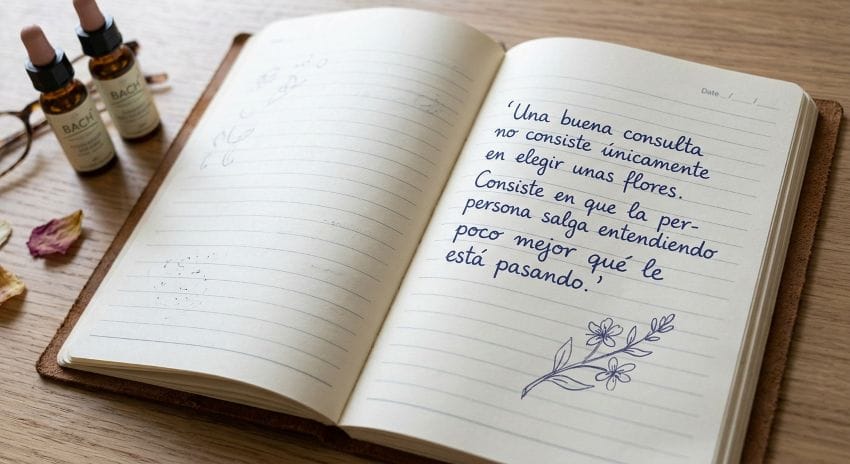 BACH
BACH
Date / /
'Una buena consulta
no consiste únicamente
en elegir unas flores.
Consiste en que la per-
persona salga entendiendo
poco mejor qué le
está pasando.'